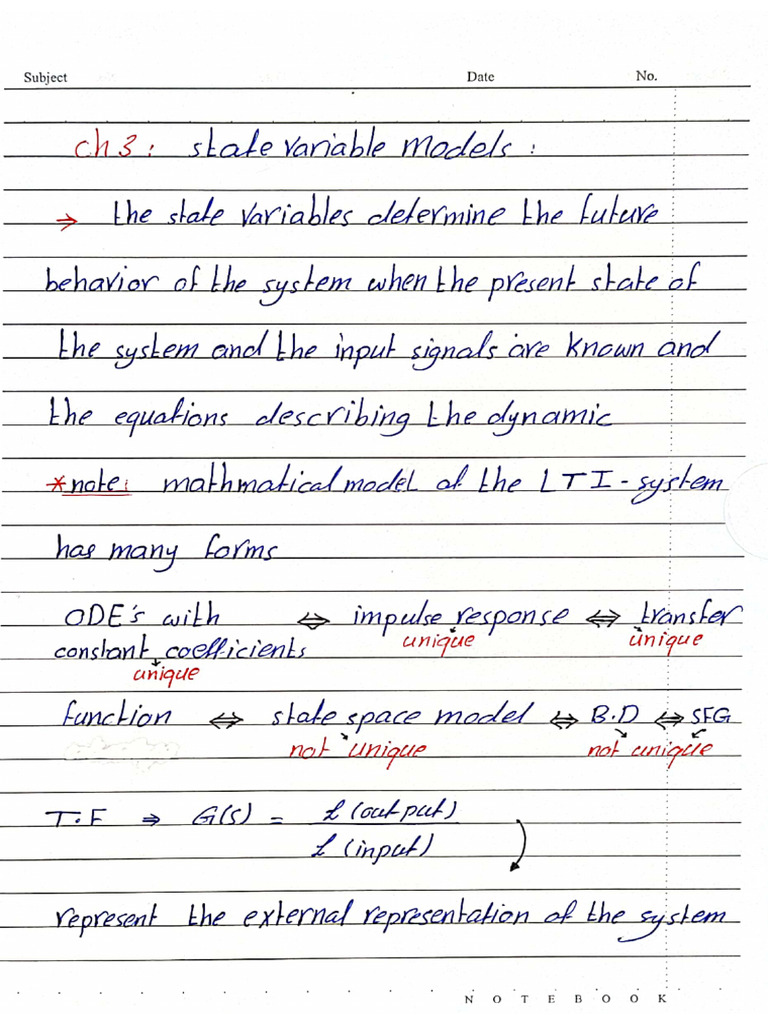 Subject Date No.
ch3: state variable models:
⇒ the state variables determine the future
behavior of the system when the present state of
the system and the input signals are known and
the equations describing the dynamic
*note: mathmatical model of the LTI-system
has many forms
ODE's with ⇔ impulse response ⇔ transfer
unique unique
constant coefficients
unique
function ⇔ state space model ⇔ B.D ⇔ SFG
not unique not unique
T.F ⇒ G(s) = ℒ(output)
ℒ(input)
represent the external representation of the system
NOTEBOOK